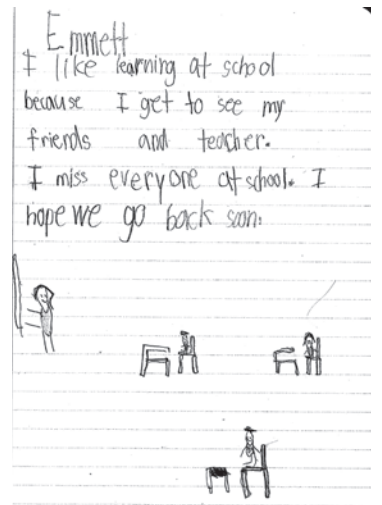 Emmett
I like learning at school
because I get to see my
friends and teacher.
I miss everyone at school. I
hope we go back soon.